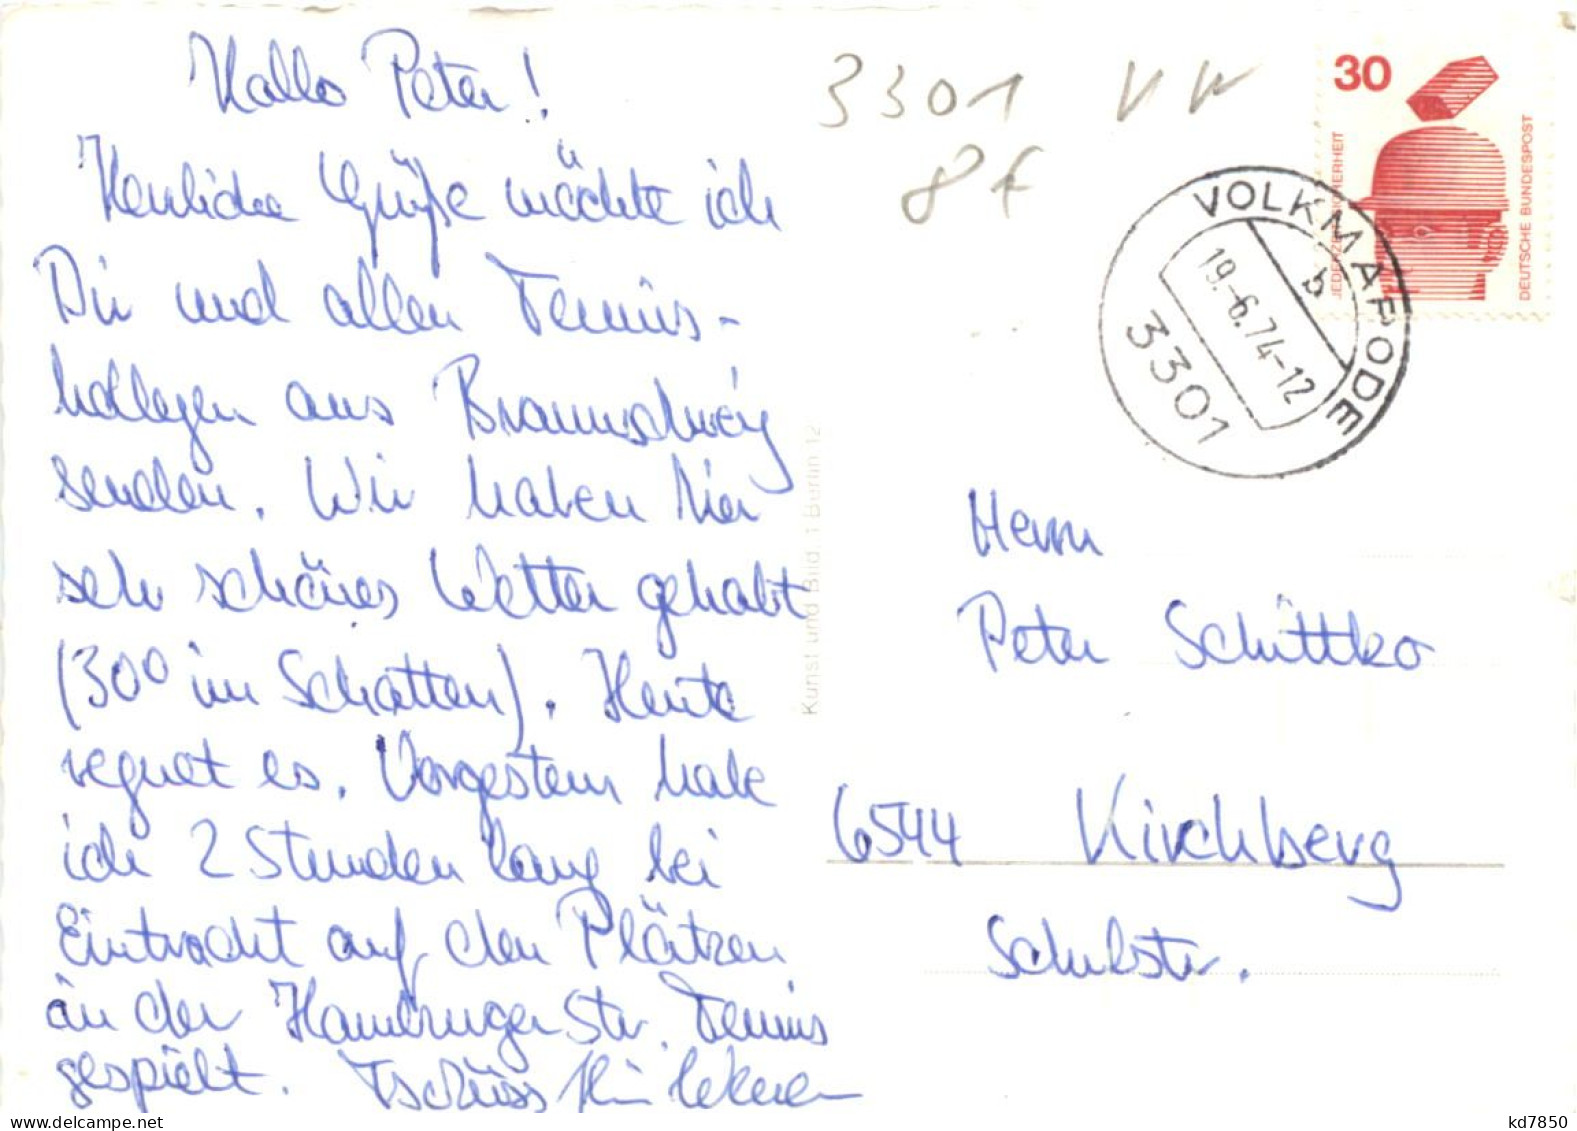 Hallo Peter!
Herzliche Grüße möchte ich
Dir und allen Tennis-
kollegen aus Braunschweig
senden. Wir haben hier
sehr schönes Wetter gehabt
(30° im Schatten). Heute
regnet es. Vorgestern habe
ich 2 Stunden lang bei
Eintracht auf den Plätzen
in der Hamburger Str. Tennis
gespielt. Tschüss
Kunst und Bild, 1 Berlin 12
3301
8f
30
JEDERZEIT SICHERHEIT
DEUTSCHE BUNDESPOST
VOLKMARODE
b
19.-6.74-12
3301
Herrn
Peter Schüttko
6544 Kirchberg
Schulstr.
kd7850